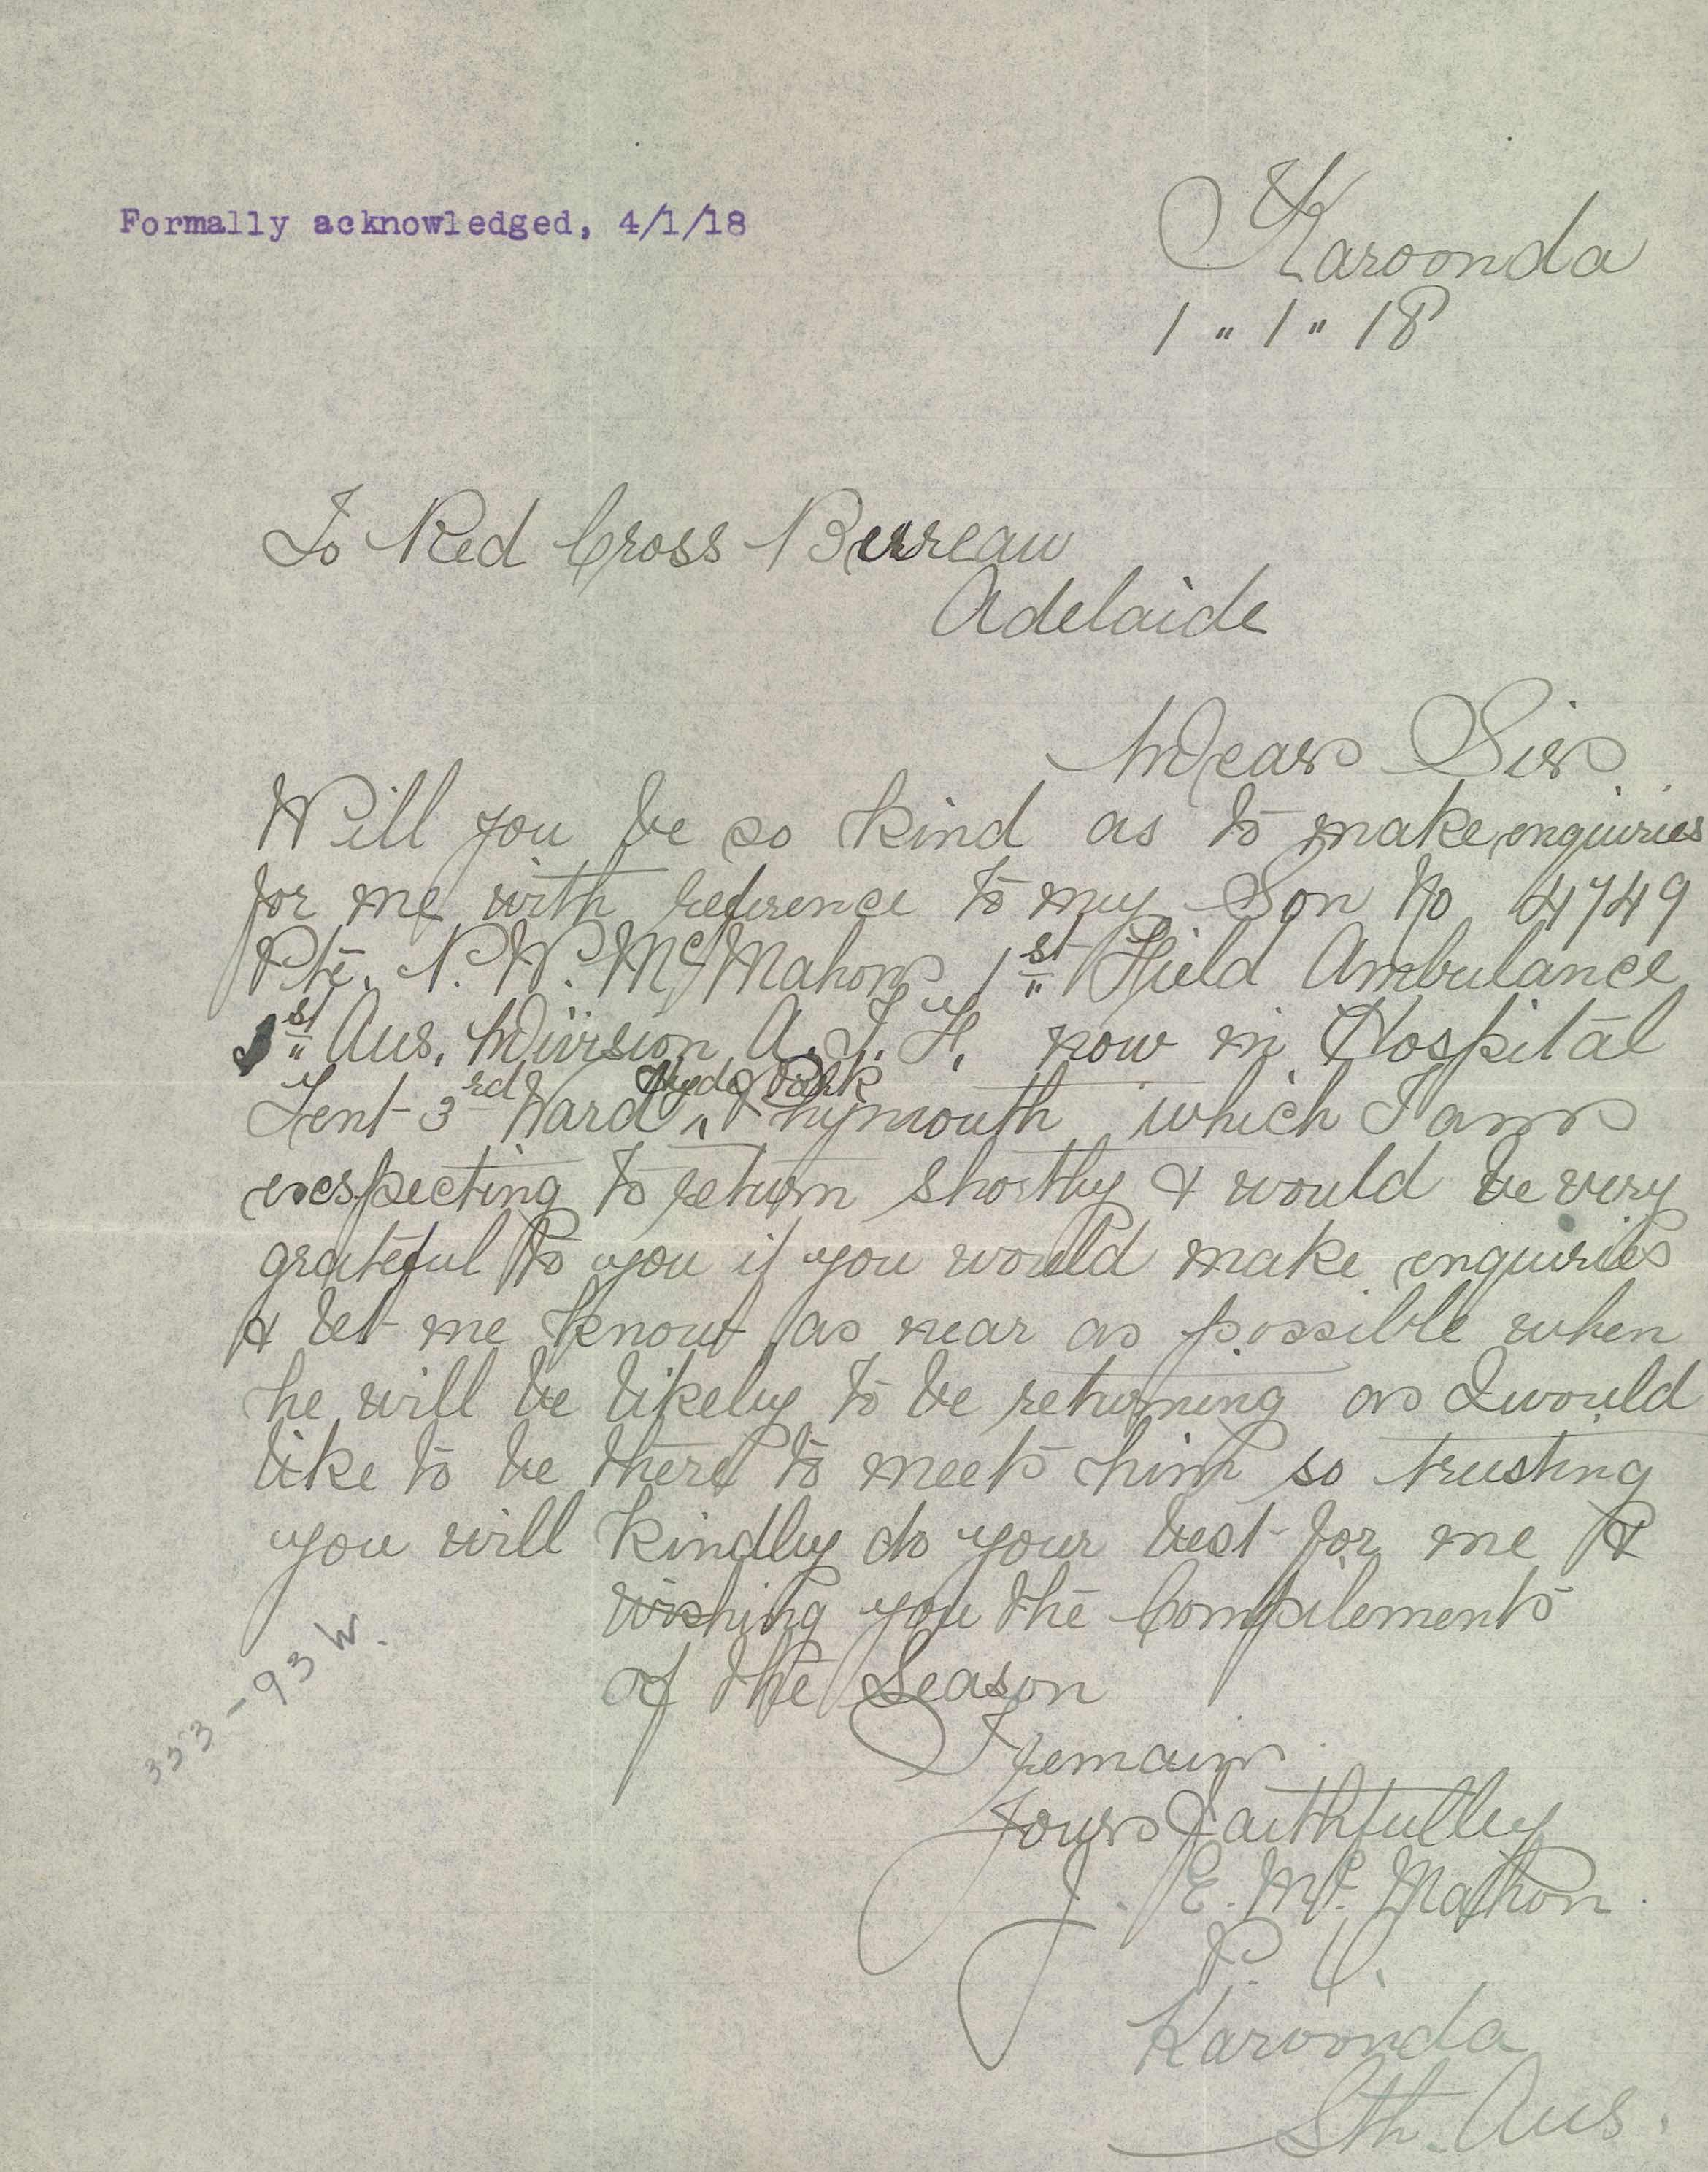 Formally acknowledged, 4/1/18
Karoonda
1 " 1 " 18
To Red Cross Burreau
Adelaide
Dear Sir
Will you be so kind as to make enquiries
for me with reference to my Son No 4749
Pte. P. W. McMahon 1st Field Ambulance
1st Aus. Division A. I. F. now in Hospital
Hyde Park
Tent 3rd Ward " Plymouth which I am
exespecting to return shortly & would be very
grateful to you if you would make enquiries
& let me know as near as possible when
he will be likely to be returning as I would
like to be there to meet him so trusting
you will kindly do your best for me &
wishing you the Complements
of the Season
I remain
Yours faithfulley
J. E. McMahon
P. O.
Karoonda
Sth. Aus.
353-93 W.